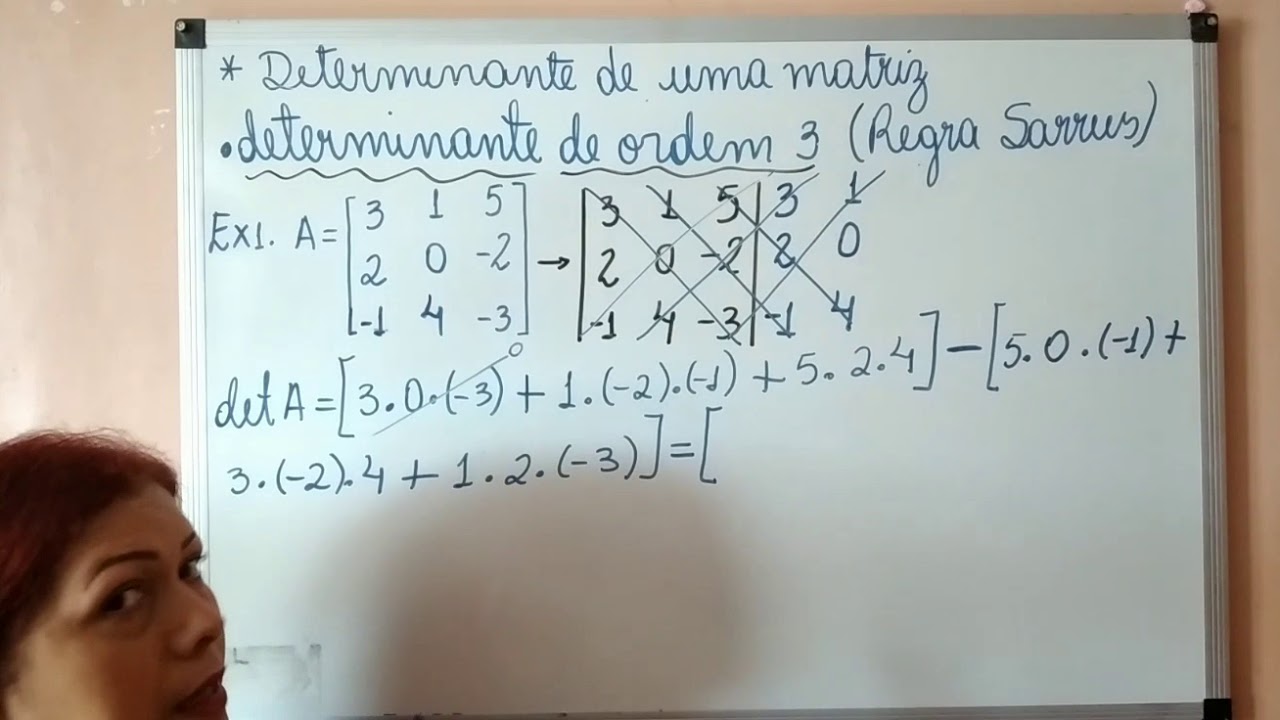 * Determinante de uma matriz
• determinante de ordem 3 (Regra Sarrus)
Ex1. A = [3 1 5 → |3 1 5| 3 1
2 0 -2 2 0 -2 2 0
-1 4 -3] -1 4 -3 -1 4
det A = [3.0.(-3) 0 + 1.(-2).(-1) + 5.2.4] - [5.0.(-1) +
3.(-2).4 + 1.2.(-3)] = [